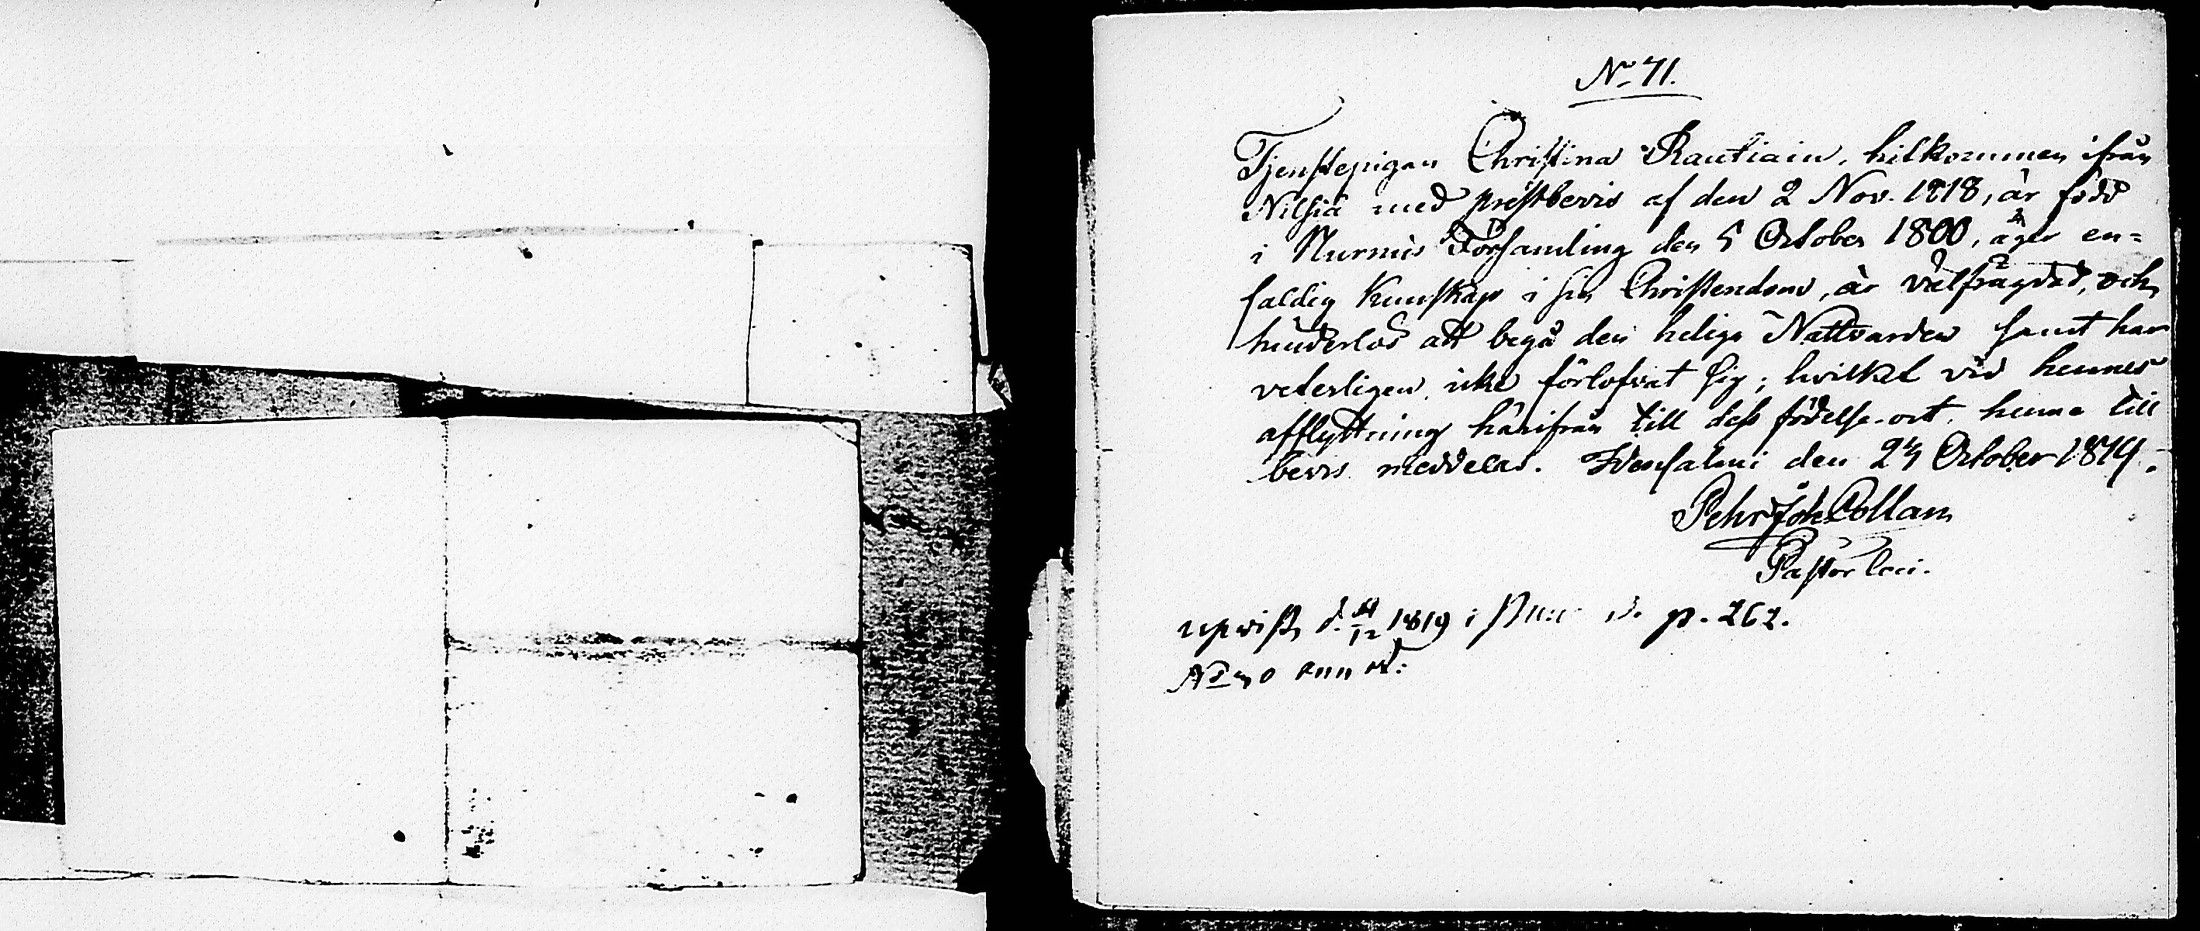 No 71.
Tjenstepigan Christina Rautiain, hitkommen ifrån
Nilsiä med prestbevis af den 2 Nov. 1818, är född
i Nurmis Församling den 5 October 1800, äger en-
faldig kunskap i sin Christendom, är välfrägdad, och
hinderlös att begå den heliga Nattvarden samt har
veterligen icke förlofvat sig; hvilket vid hennes
afflyttning härifrån till dess födelse-ort, henne till
bevis meddelas. Idensalmi den 24 October 1819.
Pehr Joh Collan
Pastor loci.
upvist d. 1819 i p. 262.